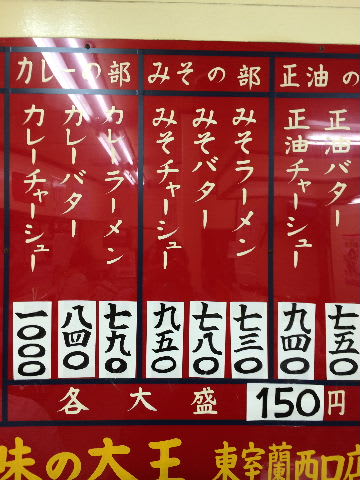 正油の
正油バター
七五〇
正油チャーシュー
九四〇
みその部
みそラーメン
七三〇
みそバター
七八〇
みそチャーシュー
九五〇
カレーの部
カレーラーメン
七九〇
カレーバター
八四〇
カレーチャーシュー
一〇〇〇
各大盛 150円
味の大王 東室蘭西口店